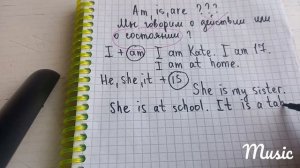 Am, is, are ???
Мы говорим о действии или
о состоянии ?
I + am I am Kate. I am 17.
I am at home.
He, she, it + is
She is my sister.
She is at school. It is a tab
Music